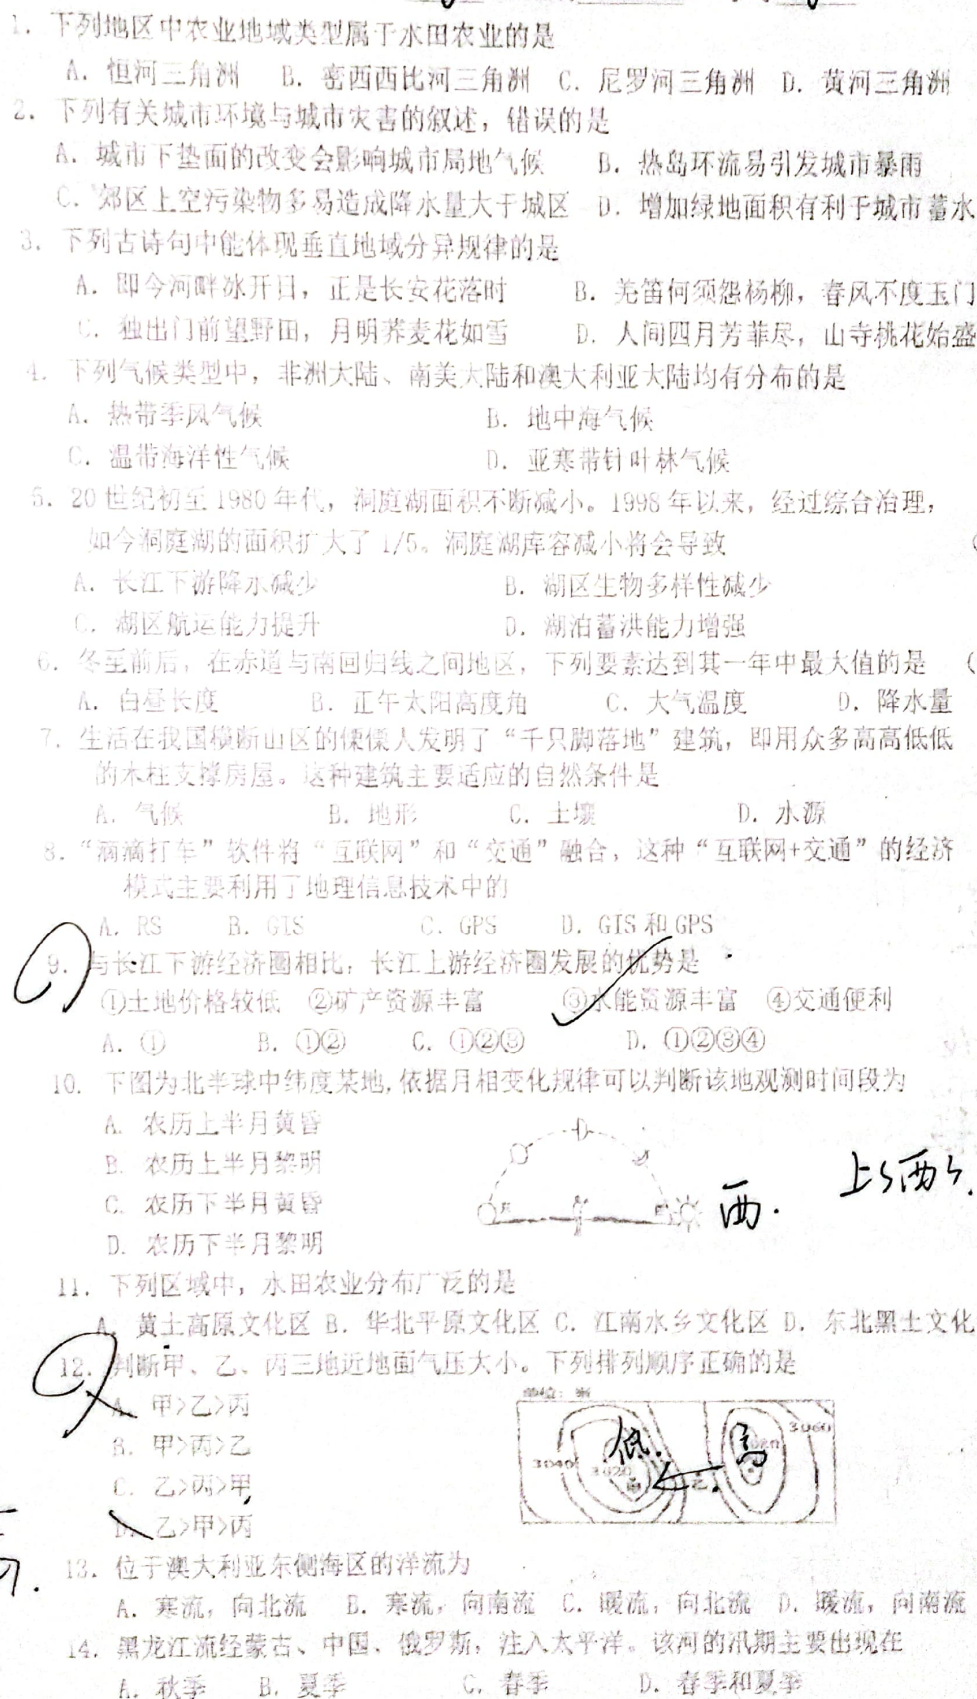 1. 下列地区中农业地域类型属于水田农业的是
A. 恒河三角洲 B. 密西西比河三角洲 C. 尼罗河三角洲 D. 黄河三角洲
2. 下列有关城市环境与城市灾害的叙述，错误的是
A. 城市下垫面的改变会影响城市局地气候 B. 热岛环流易引发城市暴雨
C. 郊区上空污染物多易造成降水量大于城区 D. 增加绿地面积有利于城市蓄水
3. 下列古诗句中能体现垂直地域分异规律的是
A. 即今河畔冰开日，正是长安花落时 B. 羌笛何须怨杨柳，春风不度玉门
C. 独出门前望野田，月明荞麦花如雪 D. 人间四月芳菲尽，山寺桃花始盛
4. 下列气候类型中，非洲大陆、南美大陆和澳大利亚大陆均有分布的是
A. 热带季风气候 B. 地中海气候
C. 温带海洋性气候 D. 亚寒带针叶林气候
5. 20世纪初至1980年代，洞庭湖面积不断减小。1998年以来，经过综合治理，
如今洞庭湖的面积扩大了1/5。洞庭湖库容减小将会导致 (
A. 长江下游降水减少 B. 湖区生物多样性减少
C. 湖区航运能力提升 D. 湖泊蓄洪能力增强
6. 冬至前后，在赤道与南回归线之间地区，下列要素达到其一年中最大值的是 (
A. 白昼长度 B. 正午太阳高度角 C. 大气温度 D. 降水量
7. 生活在我国横断山区的傈僳人发明了“千只脚落地”建筑，即用众多高高低低
的木柱支撑房屋。这种建筑主要适应的自然条件是
A. 气候 B. 地形 C. 土壤 D. 水源
8. “滴滴打车”软件将“互联网”和“交通”融合，这种“互联网+交通”的经济
模式主要利用了地理信息技术中的
A. RS B. GIS C. GPS D. GIS和GPS
9. 与长江下游经济圈相比，长江上游经济圈发展的优势是
①土地价格较低 ②矿产资源丰富 ③水能资源丰富 ④交通便利
A. ① B. ①② C. ①②③ D. ①②③④
10. 下图为北半球中纬度某地,依据月相变化规律可以判断该地观测时间段为
A. 农历上半月黄昏
B. 农历上半月黎明
C. 农历下半月黄昏
D. 农历下半月黎明
西. 上上西西.
11. 下列区域中，水田农业分布广泛的是
A. 黄土高原文化区 B. 华北平原文化区 C. 江南水乡文化区 D. 东北黑土文化
12. 判断甲、乙、丙三地近地面气压大小。下列排列顺序正确的是
A. 甲>乙>丙
B. 甲>丙>乙
C. 乙>丙>甲
D. 乙>甲>丙
单位：米
3040 3020 3060
低. 高
乙
13. 位于澳大利亚东侧海区的洋流为
A. 寒流，向北流 B. 寒流，向南流 C. 暖流，向北流 D. 暖流，向南流
14. 黑龙江流经蒙古、中国、俄罗斯，注入太平洋。该河的汛期主要出现在
A. 秋季 B. 夏季 C. 春季 D. 春季和夏季